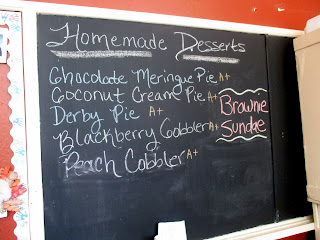 Homemade Desserts
Chocolate Meringue Pie A+
Coconut Cream Pie A+
Derby Pie A+
Blackberry Cobbler A+
Peach Cobbler A+
Brownie
Sundae